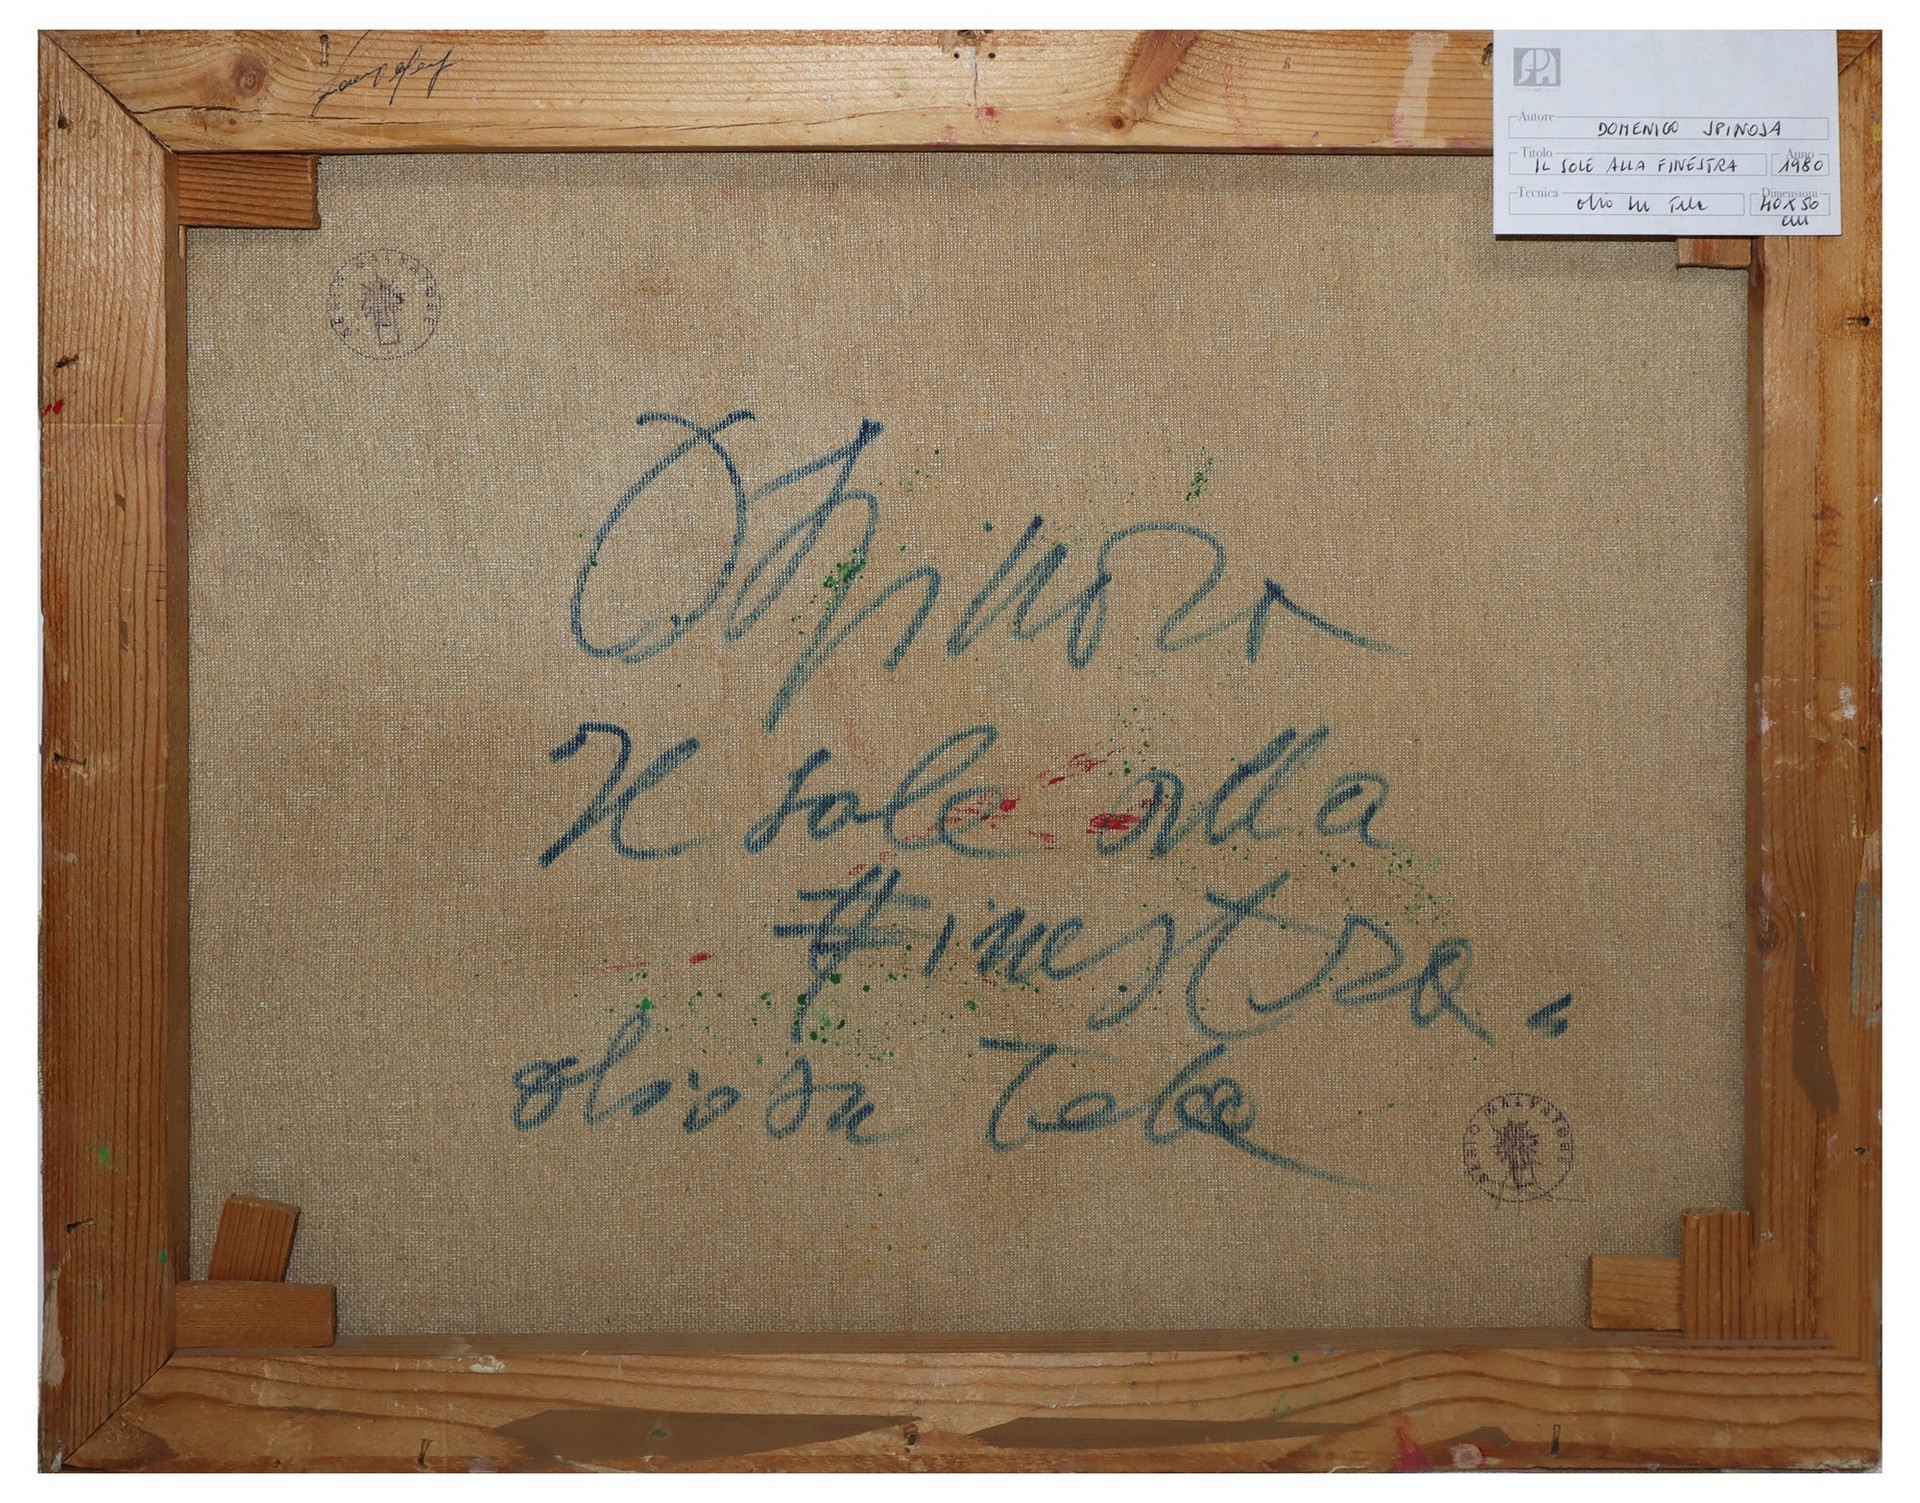 Autore
DOMENICO SPINOSA
Titolo
IL SOLE ALLA FINESTRA
Anno
1980
Tecnica
olio su Tela
Dimensioni
40x50
cm
D Spinosa
Il sole alla
finestra -
olio su Tela